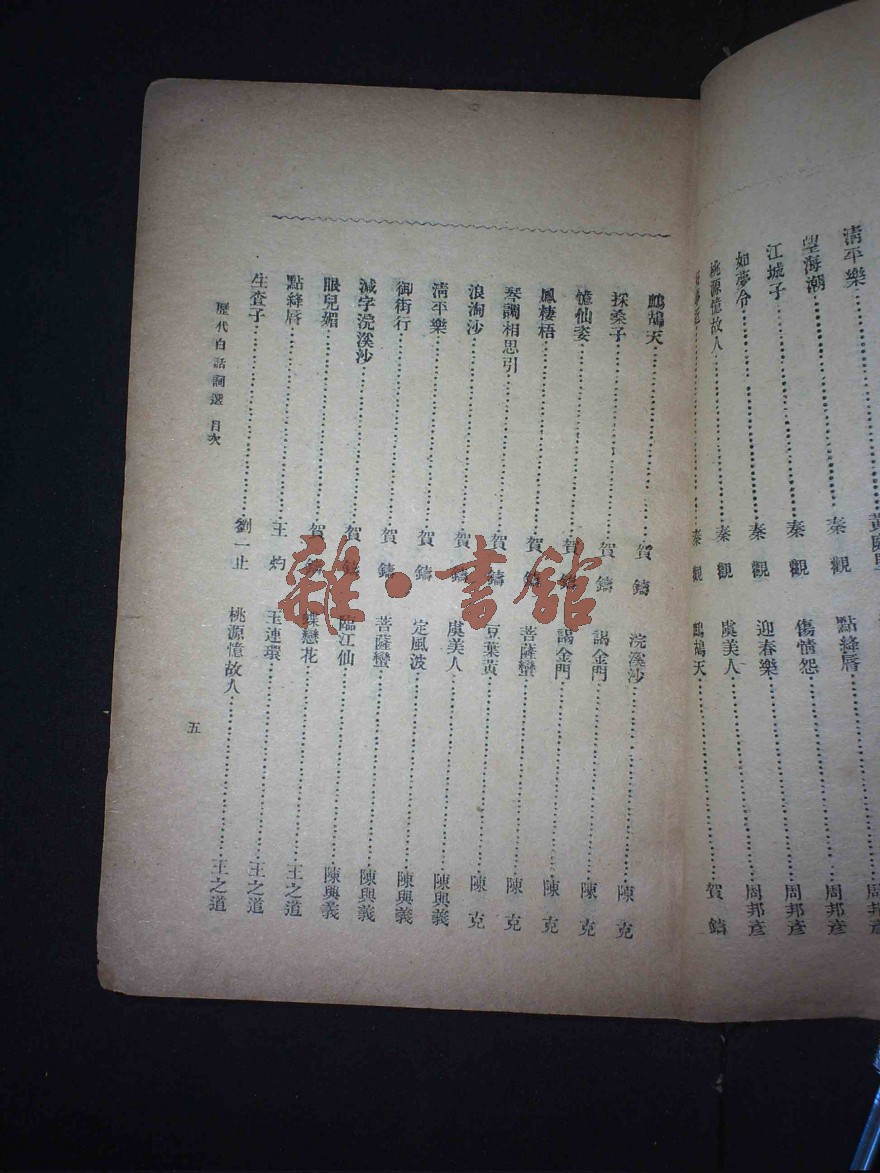 清平樂……黃庭堅
望海潮……秦觀
江城子……秦觀
如夢令……秦觀
桃源憶故人……秦觀
……秦觀
點絳唇……周邦彥
傷情怨……周邦彥
迎春樂……周邦彥
虞美人……周邦彥
鷓鴣天……賀鑄
鷓鴣天……賀鑄
採桑子……賀鑄
憶仙姿……賀鑄
鳳棲梧……賀鑄
琴調相思引……賀鑄
浪淘沙……賀鑄
清平樂……賀鑄
御街行……賀鑄
減字浣溪沙……賀鑄
眼兒媚……賀鑄
點絳唇……王灼
生査子……劉一止
浣溪沙……陳克
謁金門……陳克
謁金門……陳克
菩薩蠻……陳克
豆葉黃……陳克
虞美人……陳與義
定風波……陳與義
菩薩蠻……陳與義
臨江仙……陳與義
蝶戀花……王之道
玉連環……王之道
桃源憶故人……王之道
歷代白話詞選 目次
五
雜·書館